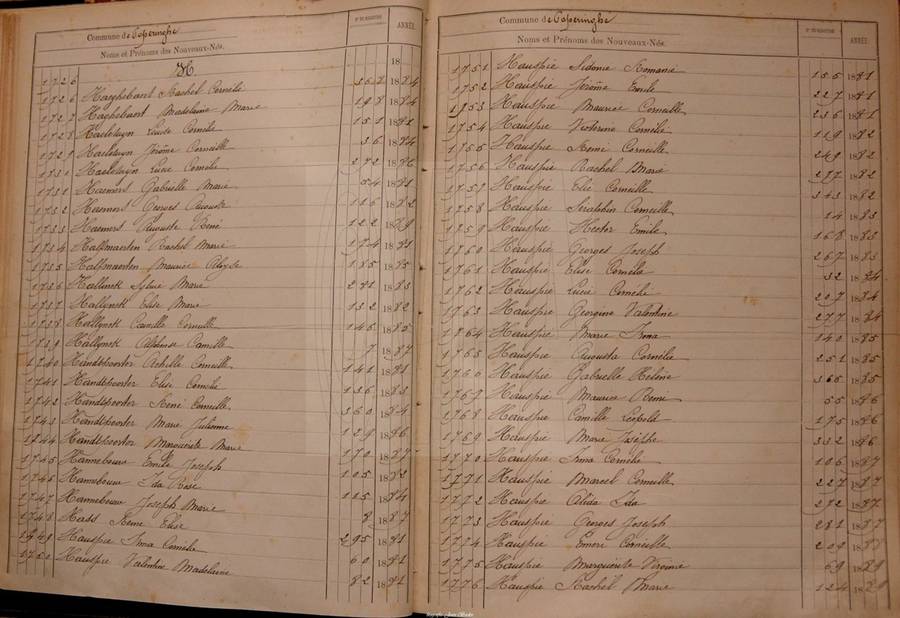 Commune de Poperinghe
Noms et Prénoms des Nouveaux-Nés.
N° DU REGISTRE
ANNÉE.
H
18
1725 Haeghebaert Rachel Cornélie 1884
1726 Haeghebaert Madelaine Marie 198 1884
1727 Haelewyn Lucie Cornélie 151 1881
1728 Haelewyn Jérôme Corneille 36 1884
1729 Haelewyn Lucie Cornélie 272 1886
1730 Haemers Gabrielle Marie 54 1881
1731 Haemers Georges Auguste 116 1882
1732 Haemers Auguste René 122 1889
1733 Halfmaerten Rachel Marie 174 1881
1734 Halfmaerten Maurice Aloyse 185 1885
1735 Hallynck Sylvie Marie 281 1883
1736 Hallynck Elise Marie 132 1882
1737 Hallynck Camille Corneille 146 1885
1738 Hallynck Alphonse Camille 7 1887
1739 Handtpoorter Achille Corneille 141 1881
1740 Handtpoorter Elise Cornélie 136 1883
1741 Handtpoorter René Corneille 360 1884
1742 Handtpoorter Marie Julienne 129 1886
1743 Handtpoorter Marguerite Marie 170 1887
1744 Hannebouw Emile Joseph 105 1883
1745 Hannebouw Ida Rose 115 1884
1747 Hannebouw Joseph Marie 8 1887
1748 Hass Reine Elise 295 1881
1749 Hauspie Irma Cornélie 60 1881
1750 Hauspie Valentine Madelaine 82 1881
Commune de Poperinghe
Noms et Prénoms des Nouveaux-Nés.
N° DU REGISTRE
ANNÉE.
1751 Hauspie Sidonie Romanie 155 1881
1752 Hauspie Jérôme Emile 227 1881
1753 Hauspie Maurice Corneille 236 1881
1754 Hauspie Victorine Cornélie 119 1882
1755 Hauspie Remi Corneille 249 1882
1756 Hauspie Rachel Marie 277 1882
1757 Hauspie Elie Corneille 343 1882
1758 Hauspie Séraphin Corneille 14 1883
1759 Hauspie Hector Emile 168 1883
1760 Hauspie Georges Joseph 267 1883
1761 Hauspie Elise Cornélie 32 1884
1762 Hauspie Lucie Cornélie 207 1884
1763 Hauspie Georgine Valentine 277 1884
1764 Hauspie Marie Irma 140 1885
1765 Hauspie Augusta Cornélie 251 1885
1766 Hauspie Gabrielle Hélène 365 1885
1767 Hauspie Maurice Remi 55 1886
1768 Hauspie Camille Léopold 175 1886
1769 Hauspie Marie Josèphe 332 1886
1770 Hauspie Irma Cornélie 106 1887
1771 Hauspie Marcel Corneille 227 1887
1772 Hauspie Alida Ida 272 1887
1773 Hauspie Georges Joseph 281 1887
1774 Hauspie Corneille 209 1888
1775 Hauspie Marguerite Virginie 69 1889
1776 Hauspie Rachel Marie 124 1889